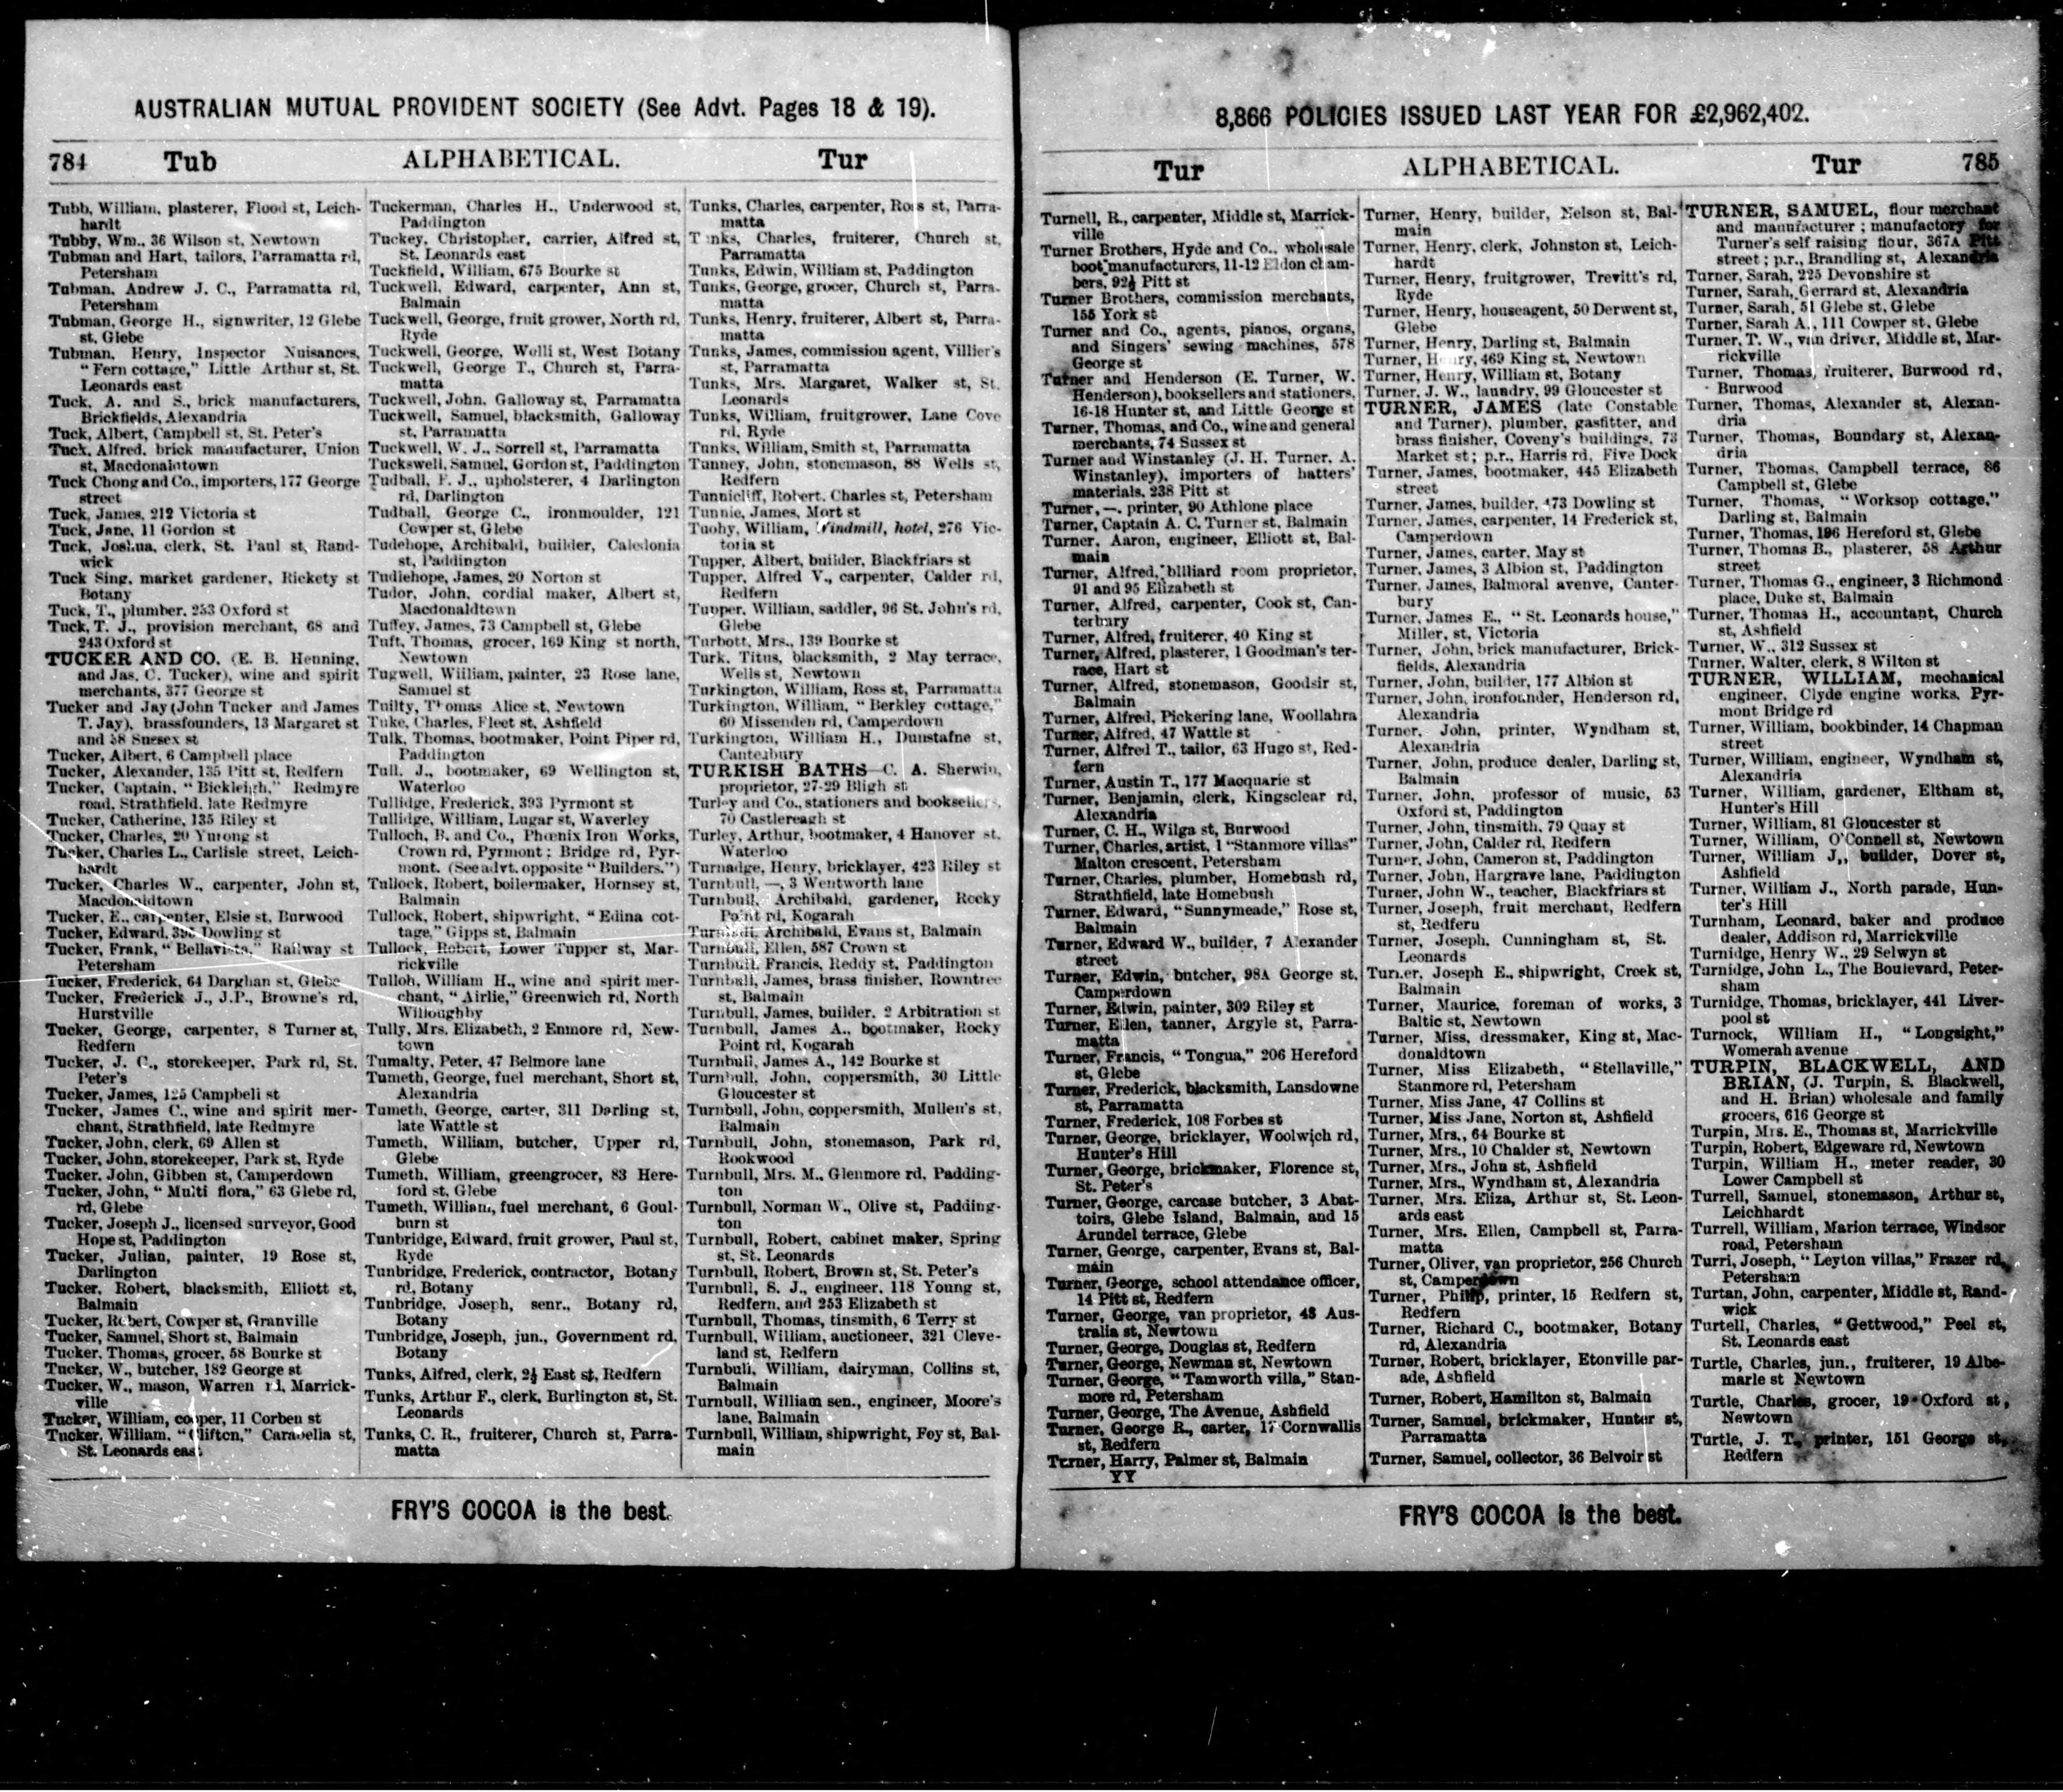 AUSTRALIAN MUTUAL PROVIDENT SOCIETY (See Advt. Pages 18 & 19).
784 Tub ALPHABETICAL. Tur
Tubb, William, plasterer, Flood st, Leich-
hardt
Tubby, Wm., 36 Wilson st, Newtown
Tubman and Hart, tailors, Parramatta rd,
Petersham
Tubman, Andrew J. C., Parramatta rd,
Petersham
Tubman, George H., signwriter, 12 Glebe
st, Glebe
Tubman, Henry, Inspector Nuisances,
"Fern cottage," Little Arthur st, St.
Leonards east
Tuck, A. and S., brick manufacturers,
Brickfields, Alexandria
Tuck, Albert, Campbell st, St. Peter's
Tuck, Alfred, brick manufacturer, Union
st, Macdonaldtown
Tuck Chong and Co., importers, 177 George
street
Tuck, James, 212 Victoria st
Tuck, Jane, 11 Gordon st
Tuck, Joshua, clerk, St. Paul st, Rand-
wick
Tuck Sing, market gardener, Rickety st
Botany
Tuck, T., plumber, 253 Oxford st
Tuck, T. J., provision merchant, 68 and
243 Oxford st
TUCKER AND CO. (E. B. Henning,
and Jas. C. Tucker), wine and spirit
merchants, 377 George st
Tucker and Jay (John Tucker and James
T. Jay), brassfounders, 13 Margaret st
and 58 Sussex st
Tucker, Albert, 6 Campbell place
Tucker, Alexander, 135 Pitt st, Redfern
Tucker, Captain, "Bickleigh," Redmyre
road, Strathfield, late Redmyre
Tucker, Catherine, 135 Riley st
Tucker, Charles, 20 Yurong st
Tucker, Charles L., Carlisle street, Leich-
hardt
Tucker, Charles W., carpenter, John st,
Macdonaldtown
Tucker, E., carpenter, Elsie st, Burwood
Tucker, Edward, Dowling st
Tucker, Frank, "Bellavista," Railway st
Petersham
Tucker, Frederick, 64 Darghan st, Glebe
Tucker, Frederick J., J.P., Browne's rd,
Hurstville
Tucker, George, carpenter, 8 Turner st,
Redfern
Tucker, J. C., storekeeper, Park rd, St.
Peter's
Tucker, James, 125 Campbell st
Tucker, James C., wine and spirit mer-
chant, Strathfield, late Redmyre
Tucker, John, clerk, 69 Allen st
Tucker, John, storekeeper, Park st, Ryde
Tucker, John, Gibben st, Camperdown
Tucker, John, "Multi flora," 63 Glebe rd,
rd, Glebe
Tucker, Joseph J., licensed surveyor, Good
Hope st, Paddington
Tucker, Julian, painter, 19 Rose st,
Darlington
Tucker, Robert, blacksmith, Elliott st,
Balmain
Tucker, Robert, Cowper st, Granville
Tucker, Samuel, Short st, Balmain
Tucker, Thomas, grocer, 58 Bourke st
Tucker, W., butcher, 182 George st
Tucker, W., mason, Warren rd, Marrick-
ville
Tucker, William, cooper, 11 Corben st
Tucker, William, "Clifton," Carabella st,
St. Leonards east
Tuckerman, Charles H., Underwood st,
Paddington
Tuckey, Christopher, carrier, Alfred st,
St. Leonards east
Tuckfield, William, 675 Bourke st
Tuckwell, Edward, carpenter, Ann st,
Balmain
Tuckwell, George, fruit grower, North rd,
Ryde
Tuckwell, George, Wolli st, West Botany
Tuckwell, George T., Church st, Parra-
matta
Tuckwell, John, Galloway st, Parramatta
Tuckwell, Samuel, blacksmith, Galloway
st, Parramatta
Tuckwell, W. J., Sorrell st, Parramatta
Tuckswell, Samuel, Gordon st, Paddington
Tudball, F. J., upholsterer, 4 Darlington
rd, Darlington
Tudball, George C., ironmoulder, 121
Cowper st, Glebe
Tudehope, Archibald, builder, Caledonia
st, Paddington
Tudehope, James, 20 Norton st
Tudor, John, cordial maker, Albert st,
Macdonaldtown
Tuffey, James, 73 Campbell st, Glebe
Tuft, Thomas, grocer, 169 King st north,
Newtown
Tugwell, William, painter, 23 Rose lane,
Samuel st
Tuilty, Thomas Alice st, Newtown
Tuke, Charles, Fleet st, Ashfield
Tulk, Thomas, bootmaker, Point Piper rd,
Paddington
Tull, J., bootmaker, 69 Wellington st,
Waterloo
Tullidge, Frederick, 393 Pyrmont st
Tullidge, William, Lugar st, Waverley
Tulloch, B. and Co., Phœnix Iron Works,
Crown rd, Pyrmont; Bridge rd, Pyr-
mont. (See advt. opposite "Builders.")
Tullock, Robert, boilermaker, Hornsey st,
Balmain
Tullock, Robert, shipwright, "Edina cot-
tage," Gipps st, Balmain
Tullock, Robert, Lower Tupper st, Mar-
rickville
Tulloh, William H., wine and spirit mer-
chant, "Airlie," Greenwich rd, North
Willoughby
Tully, Mrs. Elizabeth, 2 Enmore rd, New-
town
Tumalty, Peter, 47 Belmore lane
Tumeth, George, fuel merchant, Short st,
Alexandria
Tumeth, George, carter, 311 Darling st,
late Wattle st
Tumeth, William, butcher, Upper rd,
Glebe
Tumeth, William, greengrocer, 83 Here-
ford st, Glebe
Tumeth, William, fuel merchant, 6 Goul-
burn st
Tunbridge, Edward, fruit grower, Paul st,
Ryde
Tunbridge, Frederick, contractor, Botany
rd, Botany
Tunbridge, Joseph, senr., Botany rd,
Botany
Tunbridge, Joseph, jun., Government rd,
Botany
Tunks, Alfred, clerk, 2½ East st, Redfern
Tunks, Arthur F., clerk, Burlington st, St.
Leonards
Tunks, C. R., fruiterer, Church st, Parra-
matta
Tunks, Charles, carpenter, Ross st, Parra-
matta
Tunks, Charles, fruiterer, Church st,
Parramatta
Tunks, Edwin, William st, Paddington
Tunks, George, grocer, Church st, Parra-
matta
Tunks, Henry, fruiterer, Albert st, Parra-
matta
Tunks, James, commission agent, Villier's
st, Parramatta
Tunks, Mrs. Margaret, Walker st, St.
Leonards
Tunks, William, fruitgrower, Lane Cove
rd, Ryde
Tunks, William, Smith st, Parramatta
Tunney, John, stonemason, 88 Wells st,
Redfern
Tunnicliff, Robert, Charles st, Petersham
Tunnie, James, Mort st
Tuohy, William, Windmill, hotel, 276 Vic-
toria st
Tupper, Albert, builder, Blackfriars st
Tupper, Alfred V., carpenter, Calder rd,
Redfern
Tupper, William, saddler, 96 St. John's rd,
Glebe
Turbott, Mrs., 139 Bourke st
Turk, Titus, blacksmith, 2 May terrace,
Wells st, Newtown
Turkington, William, Ross st, Parramatta
Turkington, William, "Berkley cottage,"
60 Missenden rd, Camperdown
Turkington, William H., Dunstafne st,
Canterbury
TURKISH BATHS—C. A. Sherwin,
proprietor, 27-29 Bligh st
Turley and Co., stationers and booksellers,
70 Castlereagh st
Turley, Arthur, bootmaker, 4 Hanover st,
Waterloo
Turnadge, Henry, bricklayer, 423 Riley st
Turnbull, —, 3 Wentworth lane
Turnbull, Archibald, gardener, Rocky
Point rd, Kogarah
Turnbull, Archibald, Evans st, Balmain
Turnbull, Ellen, 587 Crown st
Turnbull, Francis, Reddy st, Paddington
Turnbull, James, brass finisher, Rowntree
st, Balmain
Turnbull, James, builder, 2 Arbitration st
Turnbull, James A., bootmaker, Rocky
Point rd, Kogarah
Turnbull, James A., 142 Bourke st
Turnbull, John, coppersmith, 30 Little
Gloucester st
Turnbull, John, coppersmith, Mullen's st,
Balmain
Turnbull, John, stonemason, Park rd,
Rookwood
Turnbull, Mrs. M., Glenmore rd, Padding-
ton
Turnbull, Norman W., Olive st, Padding-
ton
Turnbull, Robert, cabinet maker, Spring
st, St. Leonards
Turnbull, Robert, Brown st, St. Peter's
Turnbull, S. J., engineer, 118 Young st,
Redfern, and 253 Elizabeth st
Turnbull, Thomas, tinsmith, 6 Terry st
Turnbull, William, auctioneer, 321 Cleve-
land st, Redfern
Turnbull, William, dairyman, Collins st,
Balmain
Turnbull, William sen., engineer, Moore's
lane, Balmain
Turnbull, William, shipwright, Foy st, Bal-
main
FRY'S COCOA is the best.
8,866 POLICIES ISSUED LAST YEAR FOR £2,962,402.
Tur ALPHABETICAL. Tur 785
Turnell, R., carpenter, Middle st, Marrick-
ville
Turner Brothers, Hyde and Co., wholesale
boot manufacturers, 11-12 Eldon cham-
bers, 92½ Pitt st
Turner Brothers, commission merchants,
155 York st
Turner and Co., agents, pianos, organs,
and Singers' sewing machines, 578
George st
Turner and Henderson (E. Turner, W.
Henderson), booksellers and stationers,
16-18 Hunter st, and Little George st
Turner, Thomas, and Co., wine and general
merchants, 74 Sussex st
Turner and Winstanley (J. H. Turner, A.
Winstanley), importers of hatters'
materials, 238 Pitt st
Turner, —, printer, 90 Athlone place
Turner, Captain A. C. Turner st, Balmain
Turner, Aaron, engineer, Elliott st, Bal-
main
Turner, Alfred, billiard room proprietor,
91 and 95 Elizabeth st
Turner, Alfred, carpenter, Cook st, Can-
terbury
Turner, Alfred, fruiterer, 40 King st
Turner, Alfred, plasterer, 1 Goodman's ter-
race, Hart st
Turner, Alfred, stonemason, Goodsir st,
Balmain
Turner, Alfred, Pickering lane, Woollahra
Turner, Alfred, 47 Wattle st
Turner, Alfred T., tailor, 63 Hugo st, Red-
fern
Turner, Austin T., 177 Macquarie st
Turner, Benjamin, clerk, Kingsclear rd,
Alexandria
Turner, C. H., Wilga st, Burwood
Turner, Charles, artist, 1 "Stanmore villas"
Malton crescent, Petersham
Turner, Charles, plumber, Homebush rd,
Strathfield, late Homebush
Turner, Edward, "Sunnymeade," Rose st,
Balmain
Turner, Edward W., builder, 7 Alexander
street
Turner, Edwin, butcher, 98A George st,
Camperdown
Turner, Edwin, painter, 309 Riley st
Turner, Ellen, tanner, Argyle st, Parra-
matta
Turner, Francis, "Tongua," 206 Hereford
st, Glebe
Turner, Frederick, blacksmith, Lansdowne
st, Parramatta
Turner, Frederick, 108 Forbes st
Turner, George, bricklayer, Woolwich rd,
Hunter's Hill
Turner, George, brickmaker, Florence st,
St. Peter's
Turner, George, carcase butcher, 3 Abat-
toirs, Glebe Island, Balmain, and 15
Arundel terrace, Glebe
Turner, George, carpenter, Evans st, Bal-
main
Turner, George, school attendance officer,
14 Pitt st, Redfern
Turner, George, van proprietor, 43 Aus-
tralia st, Newtown
Turner, George, Douglas st, Redfern
Turner, George, Newman st, Newtown
Turner, George, "Tamworth villa," Stan-
more rd, Petersham
Turner, George, The Avenue, Ashfield
Turner, George R., carter, 17 Cornwallis
st, Redfern
Turner, Harry, Palmer st, Balmain
YY
Turner, Henry, builder, Nelson st, Bal-
main
Turner, Henry, clerk, Johnston st, Leich-
hardt
Turner, Henry, fruitgrower, Trevitt's rd,
Ryde
Turner, Henry, houseagent, 50 Derwent st,
Glebe
Turner, Henry, Darling st, Balmain
Turner, Henry, 469 King st, Newtown
Turner, Henry, William st, Botany
Turner, J. W., laundry, 99 Gloucester st
TURNER, JAMES (late Constable
and Turner), plumber, gasfitter, and
brass finisher, Coveny's buildings, 73
Market st; p.r., Harris rd, Five Dock
Turner, James, bootmaker, 445 Elizabeth
street
Turner, James, builder, 473 Dowling st
Turner, James, carpenter, 14 Frederick st,
Camperdown
Turner, James, carter, May st
Turner, James, 3 Albion st, Paddington
Turner, James, Balmoral avenve, Canter-
bury
Turner, James E., "St. Leonards house,"
Miller, st, Victoria
Turner, John, brick manufacturer, Brick-
fields, Alexandria
Turner, John, builder, 177 Albion st
Turner, John, ironfounder, Henderson rd,
Alexandria
Turner, John, printer, Wyndham st,
Alexandria
Turner, John, produce dealer, Darling st,
Balmain
Turner, John, professor of music, 53
Oxford st, Paddington
Turner, John, tinsmith, 79 Quay st
Turner, John, Calder rd, Redfern
Turner, John, Cameron st, Paddington
Turner, John, Hargrave lane, Paddington
Turner, John W., teacher, Blackfriars st
Turner, Joseph, fruit merchant, Redfern
st, Redfern
Turner, Joseph, Cunningham st, St.
Leonards
Turner, Joseph E., shipwright, Creek st,
Balmain
Turner, Maurice, foreman of works, 3
Baltic st, Newtown
Turner, Miss, dressmaker, King st, Mac-
donaldtown
Turner, Miss Elizabeth, "Stellaville,"
Stanmore rd, Petersham
Turner, Miss Jane, 47 Collins st
Turner, Miss Jane, Norton st, Ashfield
Turner, Mrs., 64 Bourke st
Turner, Mrs., 10 Chalder st, Newtown
Turner, Mrs., John st, Ashfield
Turner, Mrs., Wyndham st, Alexandria
Turner, Mrs. Eliza, Arthur st, St. Leon-
ards east
Turner, Mrs. Ellen, Campbell st, Parra-
matta
Turner, Oliver, van proprietor, 256 Church
st, Camperdown
Turner, Philip, printer, 15 Redfern st,
Redfern
Turner, Richard C., bootmaker, Botany
rd, Alexandria
Turner, Robert, bricklayer, Etonville par-
ade, Ashfield
Turner, Robert, Hamilton st, Balmain
Turner, Samuel, brickmaker, Hunter st,
Parramatta
Turner, Samuel, collector, 36 Belvoir st
TURNER, SAMUEL, flour merchant
and manufacturer; manufactory for
Turner's self raising flour, 367A Pitt
street; p.r., Brandling st, Alexandria
Turner, Sarah, 225 Devonshire st
Turner, Sarah, Gerrard st, Alexandria
Turner, Sarah, 51 Glebe st, Glebe
Turner, Sarah A., 111 Cowper st, Glebe
Turner, T. W., van driver, Middle st, Mar-
rickville
Turner, Thomas, fruiterer, Burwood rd,
Burwood
Turner, Thomas, Alexander st, Alexan-
dria
Turner, Thomas, Boundary st, Alexan-
dria
Turner, Thomas, Campbell terrace, 86
Campbell st, Glebe
Turner, Thomas, "Worksop cottage,"
Darling st, Balmain
Turner, Thomas, 196 Hereford st, Glebe
Turner, Thomas B., plasterer, 58 Arthur
street
Turner, Thomas G., engineer, 3 Richmond
place, Duke st, Balmain
Turner, Thomas H., accountant, Church
st, Ashfield
Turner, W., 312 Sussex st
Turner, Walter, clerk, 8 Wilton st
TURNER, WILLIAM, mechanical
engineer, Clyde engine works, Pyr-
mont Bridge rd
Turner, William, bookbinder, 14 Chapman
street
Turner, William, engineer, Wyndham st,
Alexandria
Turner, William, gardener, Eltham st,
Hunter's Hill
Turner, William, 81 Gloucester st
Turner, William, O'Connell st, Newtown
Turner, William J., builder, Dover st,
Ashfield
Turner, William J., North parade, Hun-
ter's Hill
Turnham, Leonard, baker and produce
dealer, Addison rd, Marrickville
Turnidge, Henry W., 29 Selwyn st
Turnidge, John L., The Boulevard, Peter-
sham
Turnidge, Thomas, bricklayer, 441 Liver-
pool st
Turnock, William H., "Longsight,"
Womerah avenue
TURPIN, BLACKWELL, AND
BRIAN, (J. Turpin, S. Blackwell,
and H. Brian) wholesale and family
grocers, 616 George st
Turpin, Mrs. E., Thomas st, Marrickville
Turpin, Robert, Edgeware rd, Newtown
Turpin, William H., meter reader, 30
Lower Campbell st
Turrell, Samuel, stonemason, Arthur st,
Leichhardt
Turrell, William, Marion terrace, Windsor
road, Petersham
Turri, Joseph, "Leyton villas," Frazer rd,
Petersham
Turtan, John, carpenter, Middle st, Rand-
wick
Turtell, Charles, "Gettwood," Peel st,
St. Leonards east
Turtle, Charles, jun., fruiterer, 19 Albe-
marle st Newtown
Turtle, Charles, grocer, 19 Oxford st,
Newtown
Turtle, J. T., printer, 151 George st,
Redfern
FRY'S COCOA is the best.